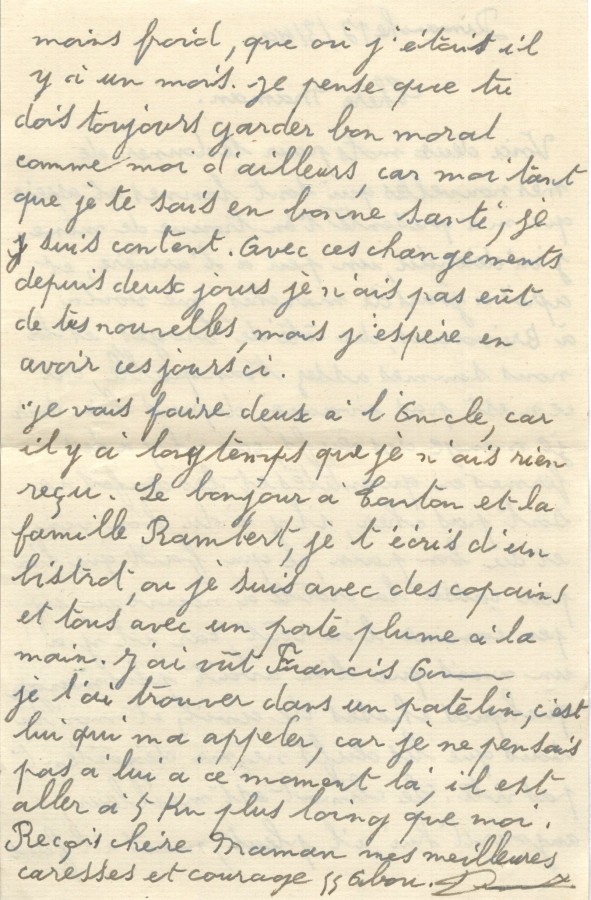 moins froid, que où j'étais il
y a un mois. Je pense que tu
dois toujours garder bon moral
comme moi d'ailleurs, car moi tant
que je te sais en bonne santé, je
suis content. Avec ces changements
depuis deux jours je n'ais pas eût
de tes nouvelles, mais j'espère en
avoir ces jours ci.
Je vais faire deux à l'Oncle, car
il y a longtemps que je n'ais rien
reçu. Le bonjour à Tonton et la
famille Rambert, je t'écris d'un
bistrot, ou je suis avec des copains
et tous avec un porte plume à la
main. J'ai vût Francis
je l'ai trouver dans un patelin, c'est
lui qui ma appeler, car je ne pensais
pas à lui à ce moment là, il est
aller à 5 Km plus loing que moi.
Reçois chère Maman mes meilleures
caresses et courage